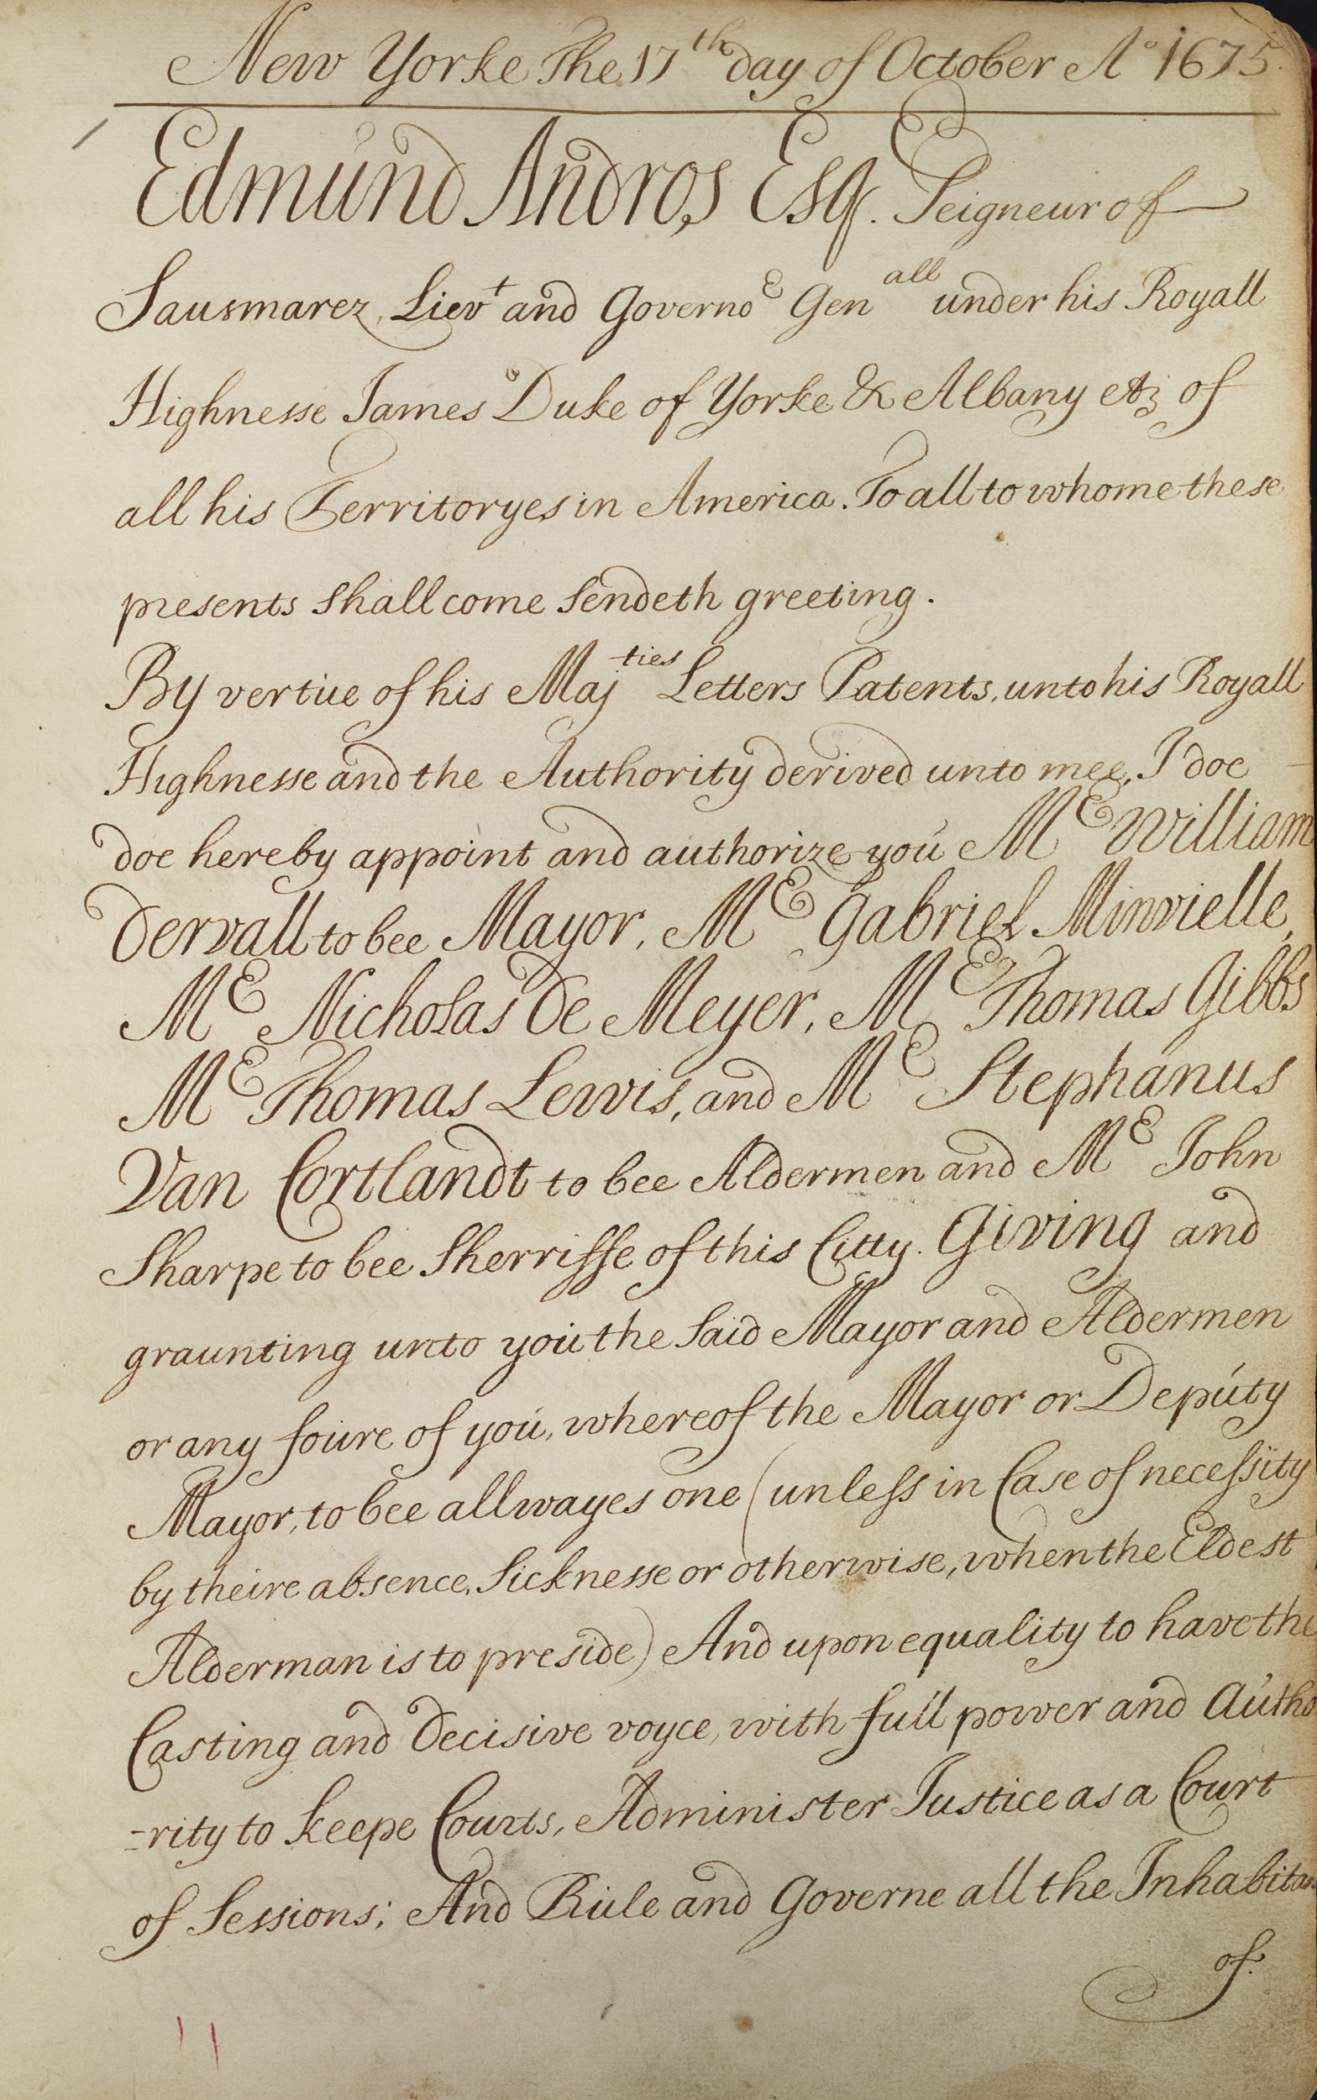 New Yorke The 17th day of October Ao 1675.
Edmund Andros Esqr. Seigneur of
Sausmarez, Lievt and Governor Genall under his Royall
Highnesse James Duke of Yorke & Albany etc of
all his Territoryes in America. To all to whome these
presents shall come Sendeth greeting.
By vertue of his Majties Letters Patents, unto his Royall
Highnesse and the Authority derived unto mee, I doe
doe hereby appoint and authorize you Mr William
Dervall to bee Mayor, Mr Gabriel Minvielle,
Mr Nicholas De Meyer, Mr Thomas Gibbs
Mr Thomas Lewis, and Mr Stephanus
Van Cortlandt to bee Aldermen and Mr John
Sharpe to bee Sherriffe of this Citty. Giving and
graunting unto you the Said Mayor and Aldermen
or any foure of you, whereof the Mayor or Deputy
Mayor, to bee allwayes one (unless in Case of necessity
by theire absence, Sicknesse or otherwise, when the Eldest
Alderman is to preside) And upon equality to have the
Casting and Decisive voyce, with full power and Autho
-rity to keepe Courts, Administer Justice as a Court
of Sessions; And Rule and Governe all the Inhabitan
of.